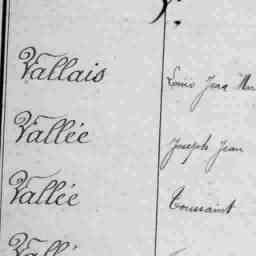 V.
Vallais Louis Jean Mar
Vallée Joseph Jean
Vallée Toussaint
Vallé